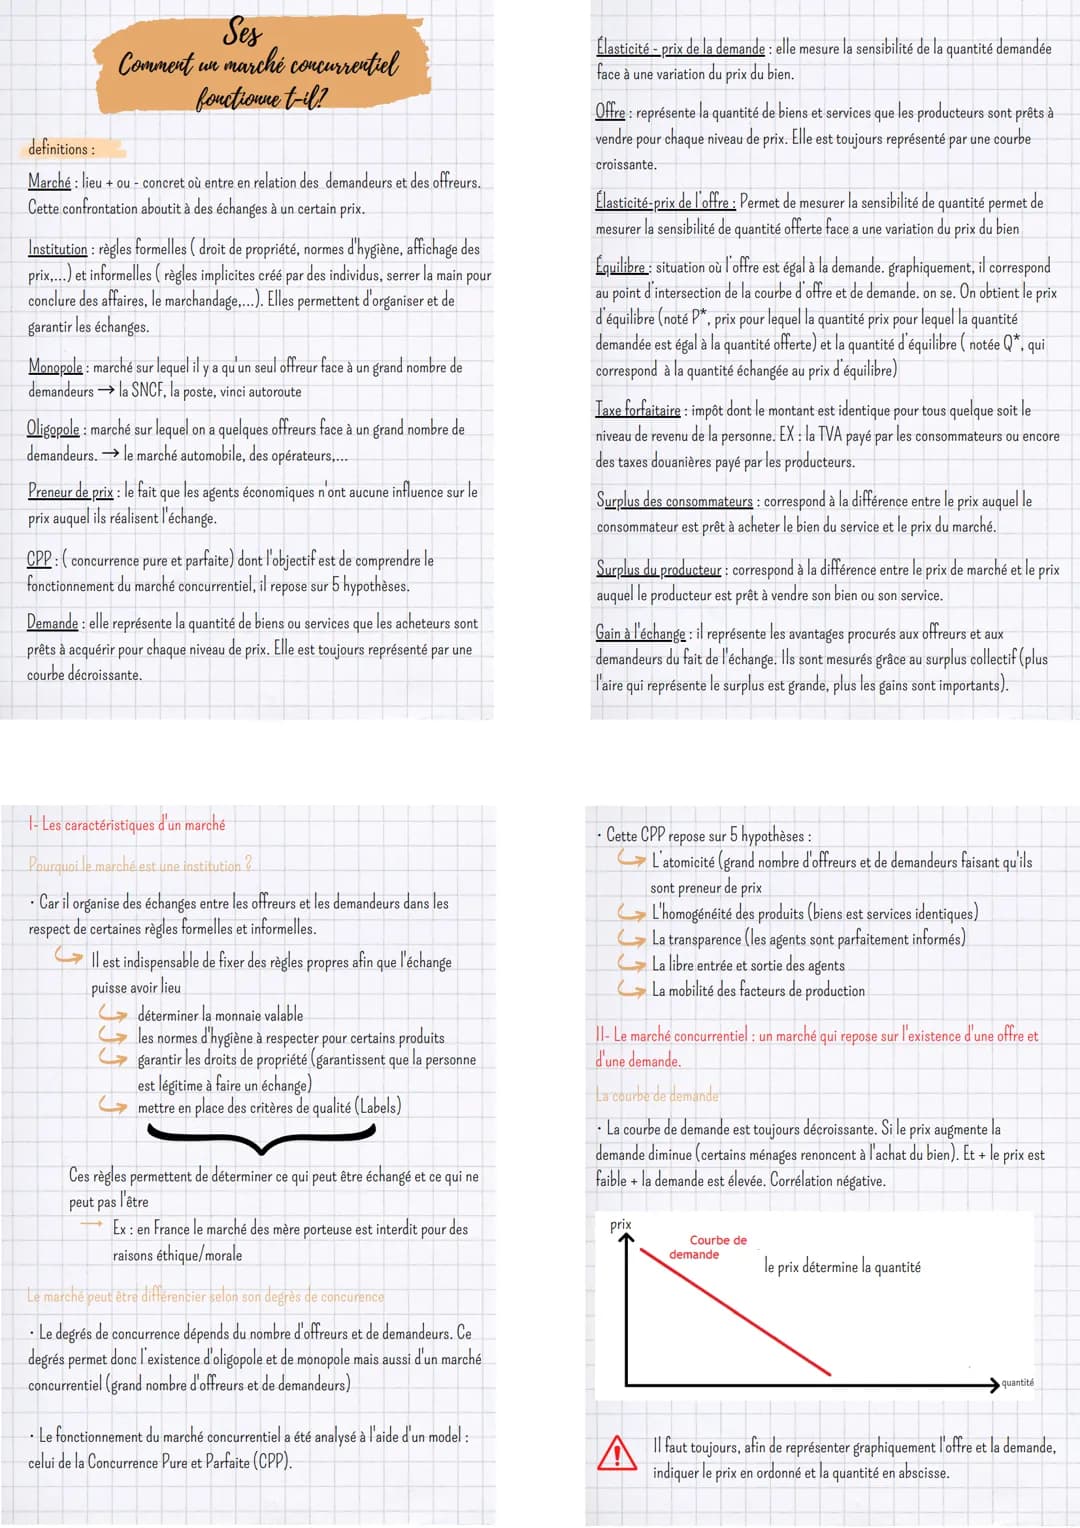 Ses
Comment un marché concurrentiel
fonctionne t-il?
definitions :
Marché : lieu + ou - concret où entre en relation des demandeurs et des offreurs.
Cette confrontation aboutit à des échanges à un certain prix.
Institution : règles formelles ( droit de propriété, normes d'hygiène, affichage des
prix,...) et informelles ( règles implicites créé par des individus, serrer la main pour
conclure des affaires, le marchandage,...). Elles permettent d'organiser et de
garantir les échanges.
Monopole : marché sur lequel il y a qu'un seul offreur face à un grand nombre de
demandeurs → la SNCF, la poste, vinci autoroute
Oligopole : marché sur lequel on a quelques offreurs face à un grand nombre de
demandeurs. → le marché automobile, des opérateurs,...
Preneur de prix : le fait que les agents économiques n'ont aucune influence sur le
prix auquel ils réalisent l'échange.
CPP : ( concurrence pure et parfaite) dont l'objectif est de comprendre le
fonctionnement du marché concurrentiel, il repose sur 5 hypothèses.
Demande : elle représente la quantité de biens ou services que les acheteurs sont
prêts à acquérir pour chaque niveau de prix. Elle est toujours représenté par une
courbe décroissante.
Élasticité - prix de la demande : elle mesure la sensibilité de la quantité demandée
face à une variation du prix du bien.
Offre : représente la quantité de biens et services que les producteurs sont prêts à
vendre pour chaque niveau de prix. Elle est toujours représenté par une courbe
croissante.
Élasticité-prix de l'offre : Permet de mesurer la sensibilité de quantité permet de
mesurer la sensibilité de quantité offerte face a une variation du prix du bien
Équilibre : situation où l'offre est égal à la demande. graphiquement, il correspond
au point d'intersection de la courbe d'offre et de demande. on se. On obtient le prix
d'équilibre (noté P*, prix pour lequel la quantité prix pour lequel la quantité
demandée est égal à la quantité offerte) et la quantité d'équilibre ( notée Q*, qui
correspond à la quantité échangée au prix d'équilibre)
Taxe forfaitaire : impôt dont le montant est identique pour tous quelque soit le
niveau de revenu de la personne. EX : la TVA payé par les consommateurs ou encore
des taxes douanières payé par les producteurs.
Surplus des consommateurs : correspond à la différence entre le prix auquel le
consommateur est prêt à acheter le bien du service et le prix du marché.
Surplus du producteur : correspond à la différence entre le prix de marché et le prix
auquel le producteur est prêt à vendre son bien ou son service.
Gain à l'échange : il représente les avantages procurés aux offreurs et aux
demandeurs du fait de l'échange. Ils sont mesurés grâce au surplus collectif (plus
l'aire qui représente le surplus est grande, plus les gains sont importants).
I- Les caractéristiques d'un marché
Pourquoi le marché est une institution ?
· Car il organise des échanges entre les offreurs et les demandeurs dans les
respect de certaines règles formelles et informelles.
Il est indispensable de fixer des règles propres afin que l'échange
puisse avoir lieu
déterminer la monnaie valable
les normes d'hygiène à respecter pour certains produits
garantir les droits de propriété (garantissent que la personne
est légitime à faire un échange)
mettre en place des critères de qualité (Labels)
Ces règles permettent de déterminer ce qui peut être échangé et ce qui ne
peut pas l'être
→ Ex : en France le marché des mère porteuse est interdit pour des
raisons éthique/morale
Le marché peut être différencier selon son degrès de concurence
· Le degrés de concurrence dépends du nombre d'offreurs et de demandeurs. Ce
degrés permet donc l'existence d'oligopole et de monopole mais aussi d'un marché
concurrentiel (grand nombre d'offreurs et de demandeurs)
· Le fonctionnement du marché concurrentiel a été analysé à l'aide d'un model :
celui de la Concurrence Pure et Parfaite (CPP).
· Cette CPP repose sur 5 hypothèses :
L'atomicité (grand nombre d'offreurs et de demandeurs faisant qu'ils
sont preneur de prix
L'homogénéité des produits (biens est services identiques)
La transparence (les agents sont parfaitement informés)
La libre entrée et sortie des agents
La mobilité des facteurs de production
II- Le marché concurrentiel : un marché qui repose sur l'existence d'une offre et
d'une demande.
La courbe de demande
· La courbe de demande est toujours décroissante. Si le prix augmente la
demande diminue (certains ménages renoncent à l'achat du bien). Et + le prix est
faible + la demande est élevée. Corrélation négative.
prix
Courbe de
demande
le prix détermine la quantité
quantité
Il faut toujours, afin de représenter graphiquement l'offre et la demande,
indiquer le prix en ordonné et la quantité en abscisse.